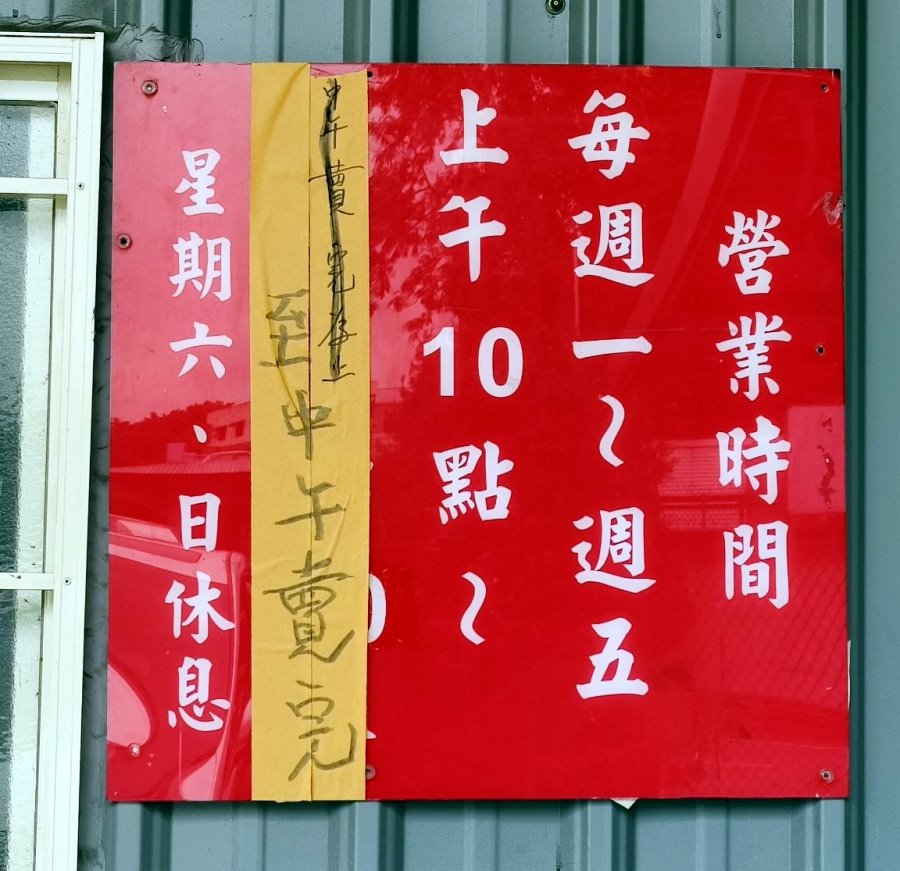 營業時間
每週一~週五
上午10點~
中午賣完為止
至中午賣完
星期六、日休息